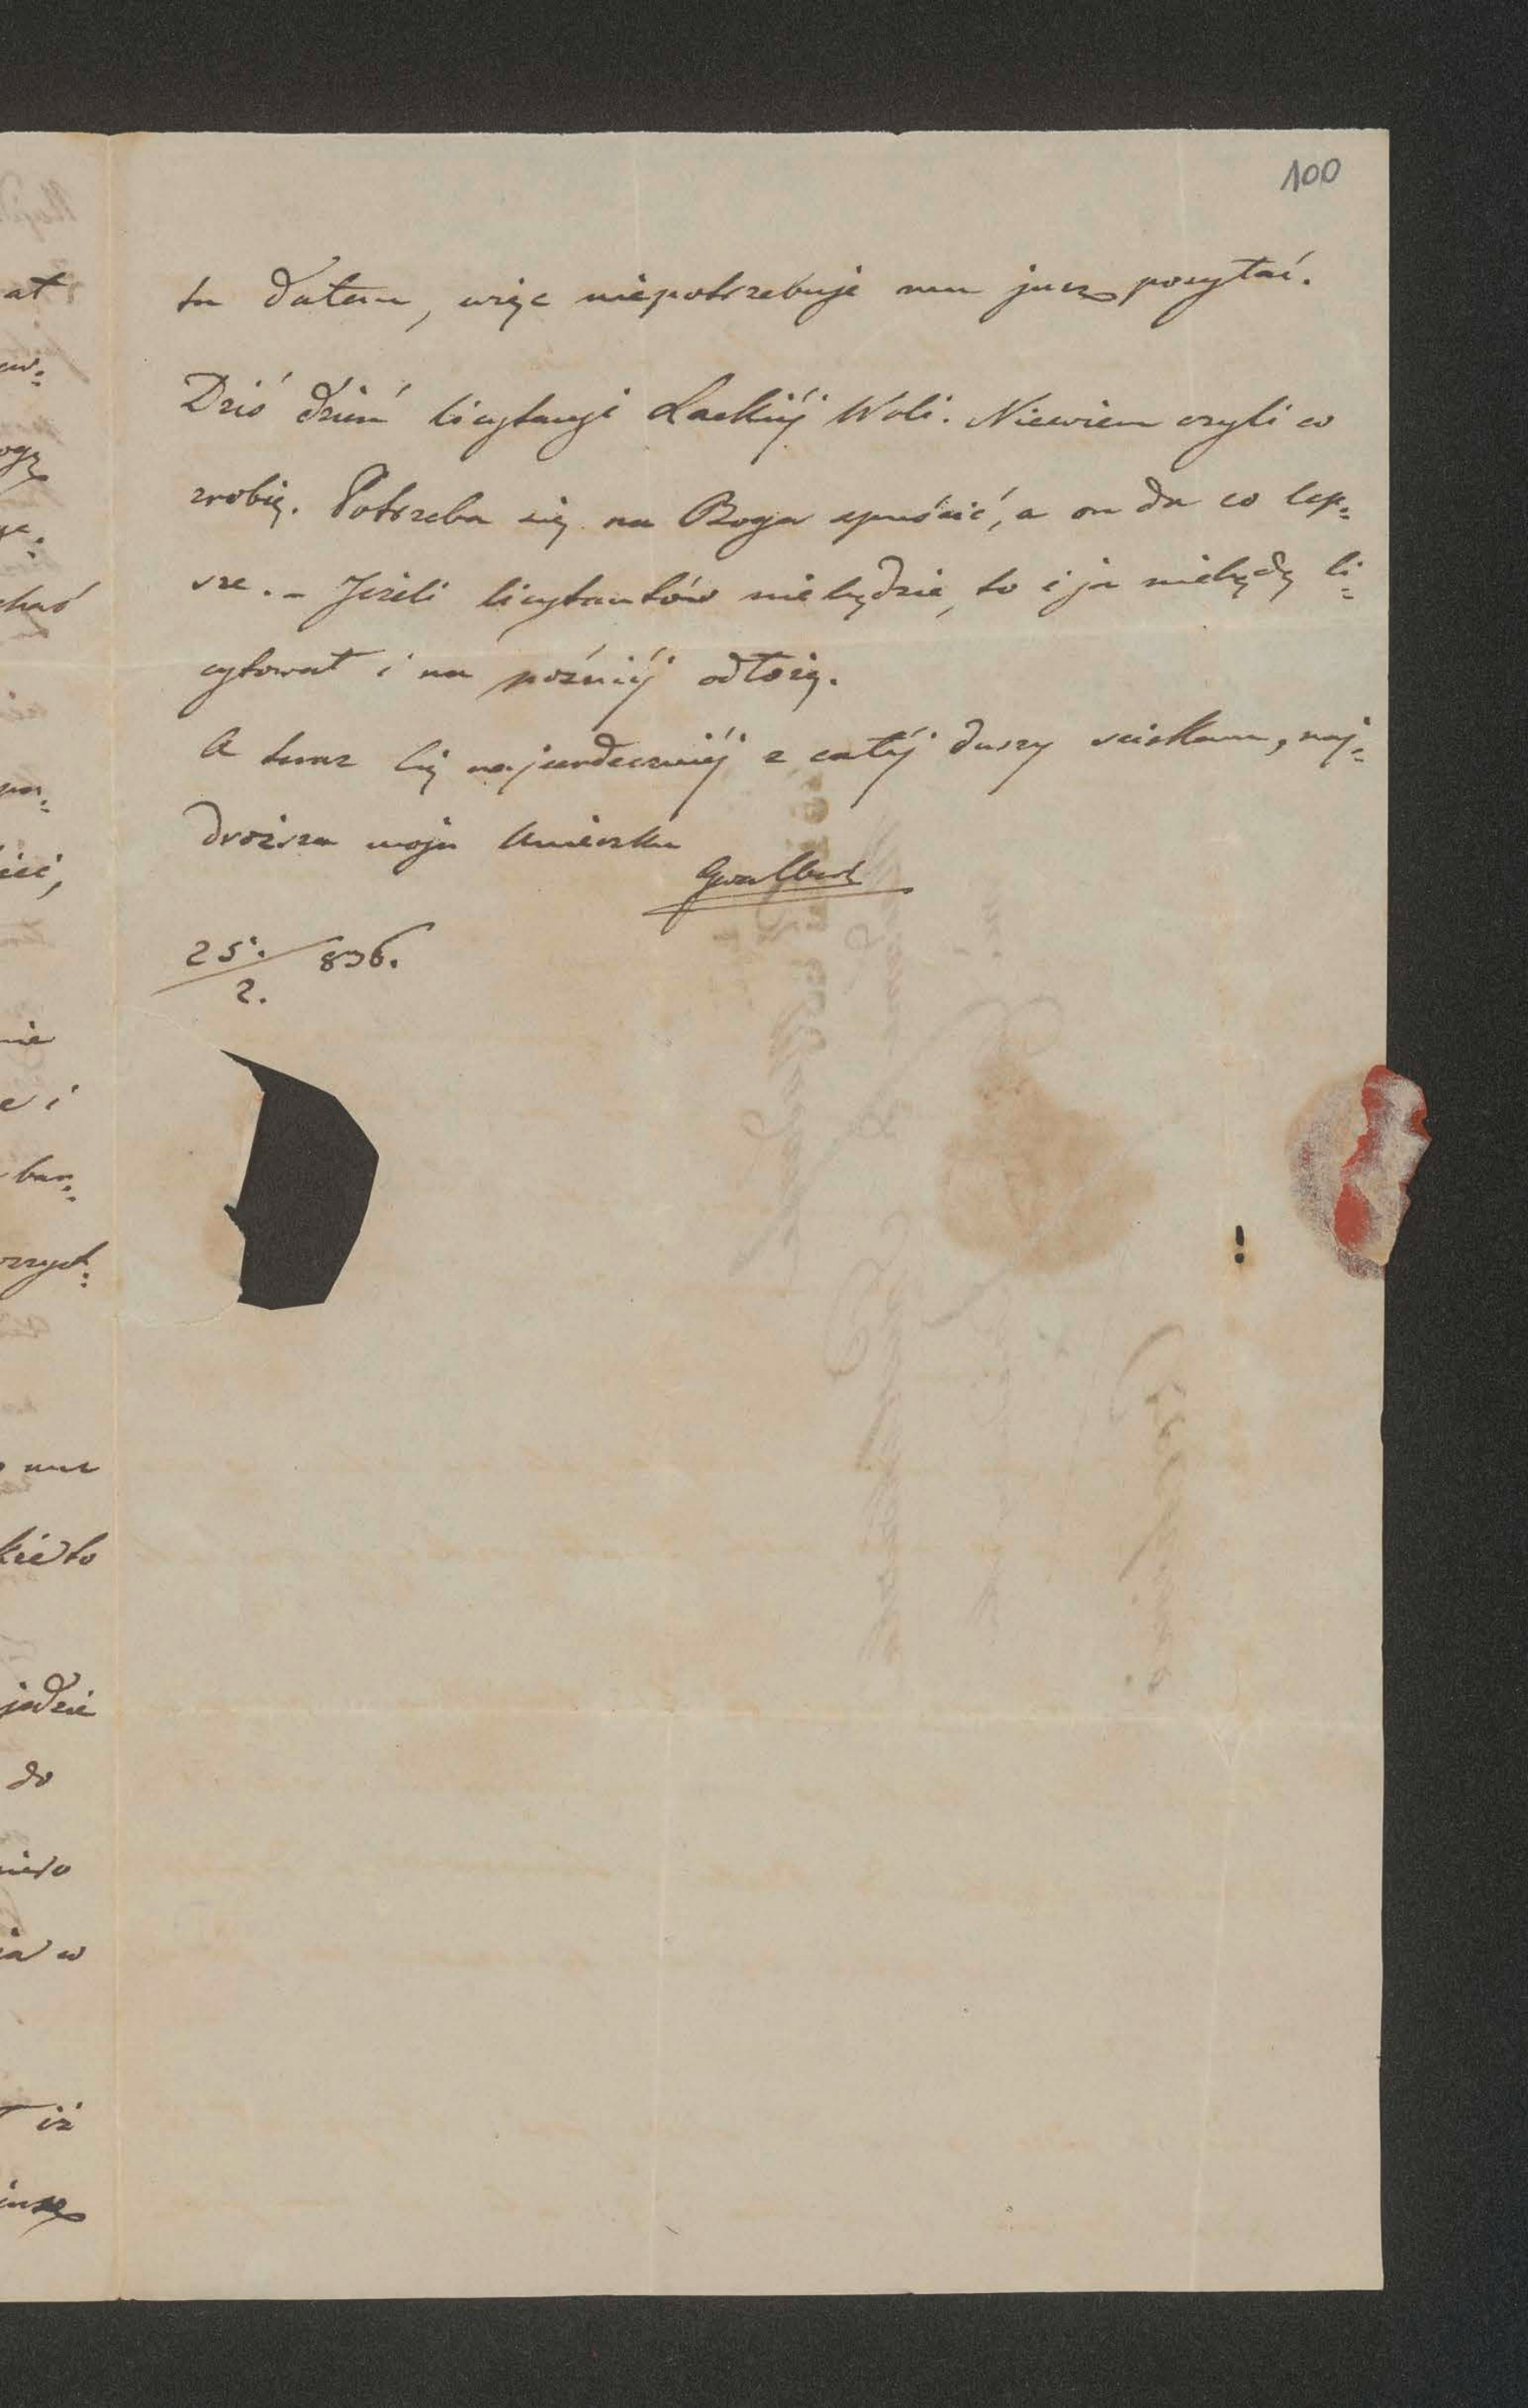 100
tu dałem, więc niepotrzebuje mu juz posyłać.
Dziś dzień licytacyi Lackiéj Woli. Niewiem czyli co
zrobię. Potrzeba się na Boga spuścić, a on da co lep=
sze. – Jeżeli licytantów niebędzie, to i ja niebędę li=
cytował i na poźniéj odłożę.
A teraz Cię najserdeczniéj z całéj duszy sciskam, naj=
droższa moja Anieczku
Gwalbert
25./2. 836.
at
ogę
nie
e i
bar=
do
ia w
iż